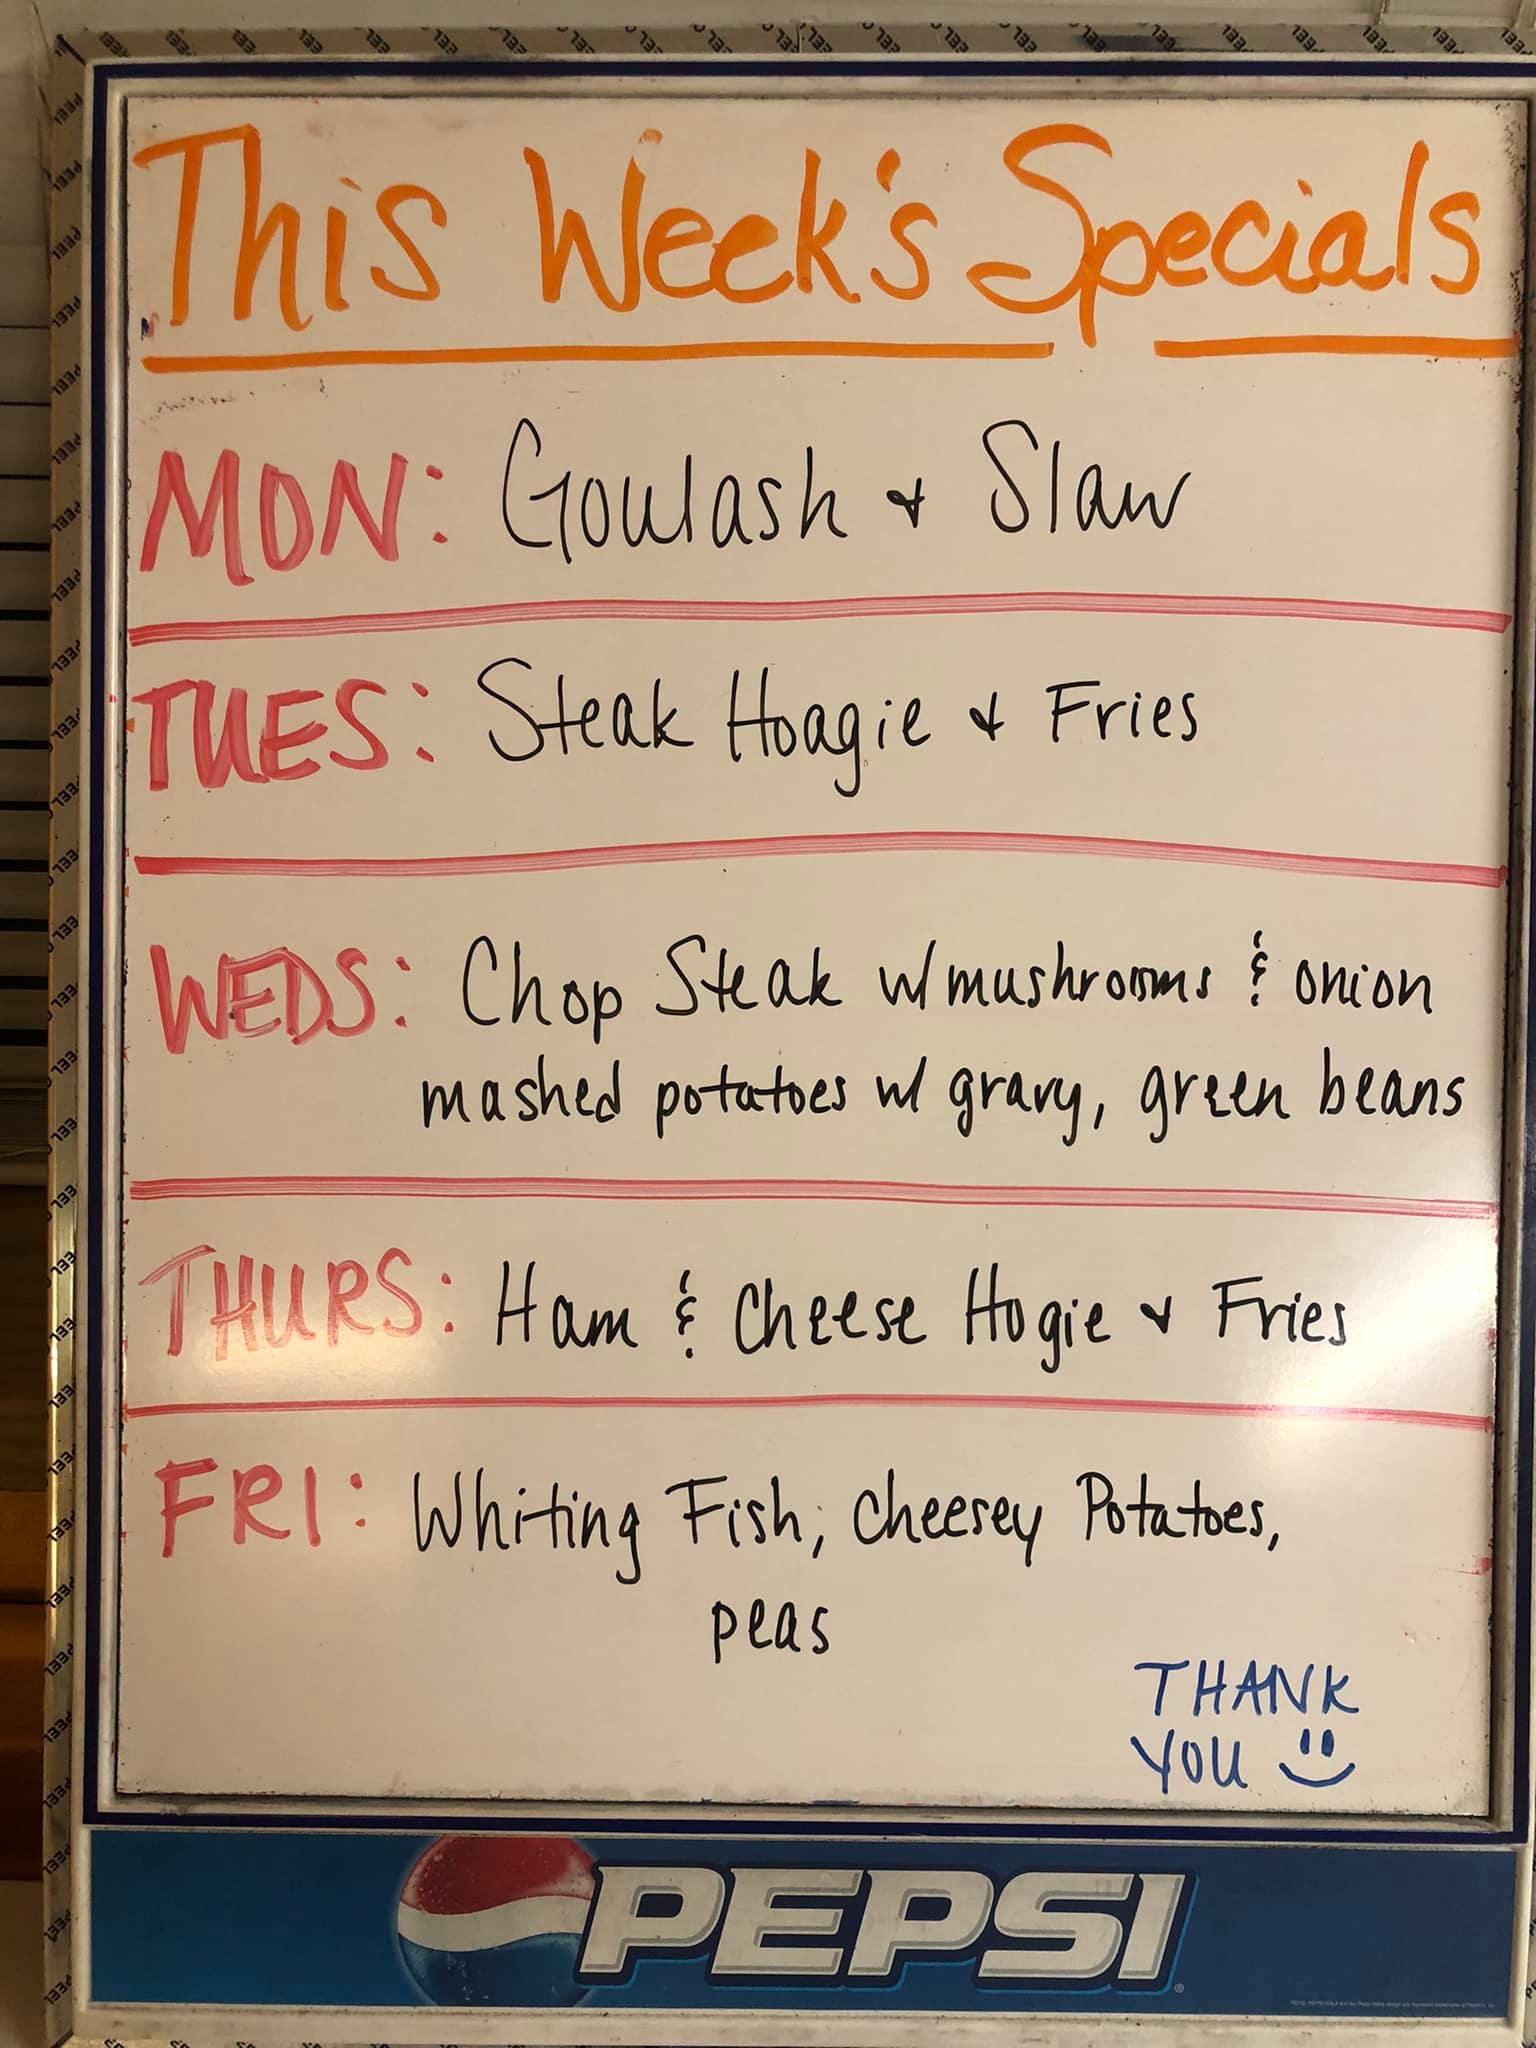 This Week's Specials
MON: Goulash & Slaw
TUES: Steak Hoagie & Fries
WEDS: Chop Steak w/mushrooms & onion
mashed potatoes w/ gravy, green beans
THURS: Ham & Cheese Hogie & Fries
FRI: Whiting Fish, Cheesey Potatoes,
peas
THANK
YOU
PEPSI